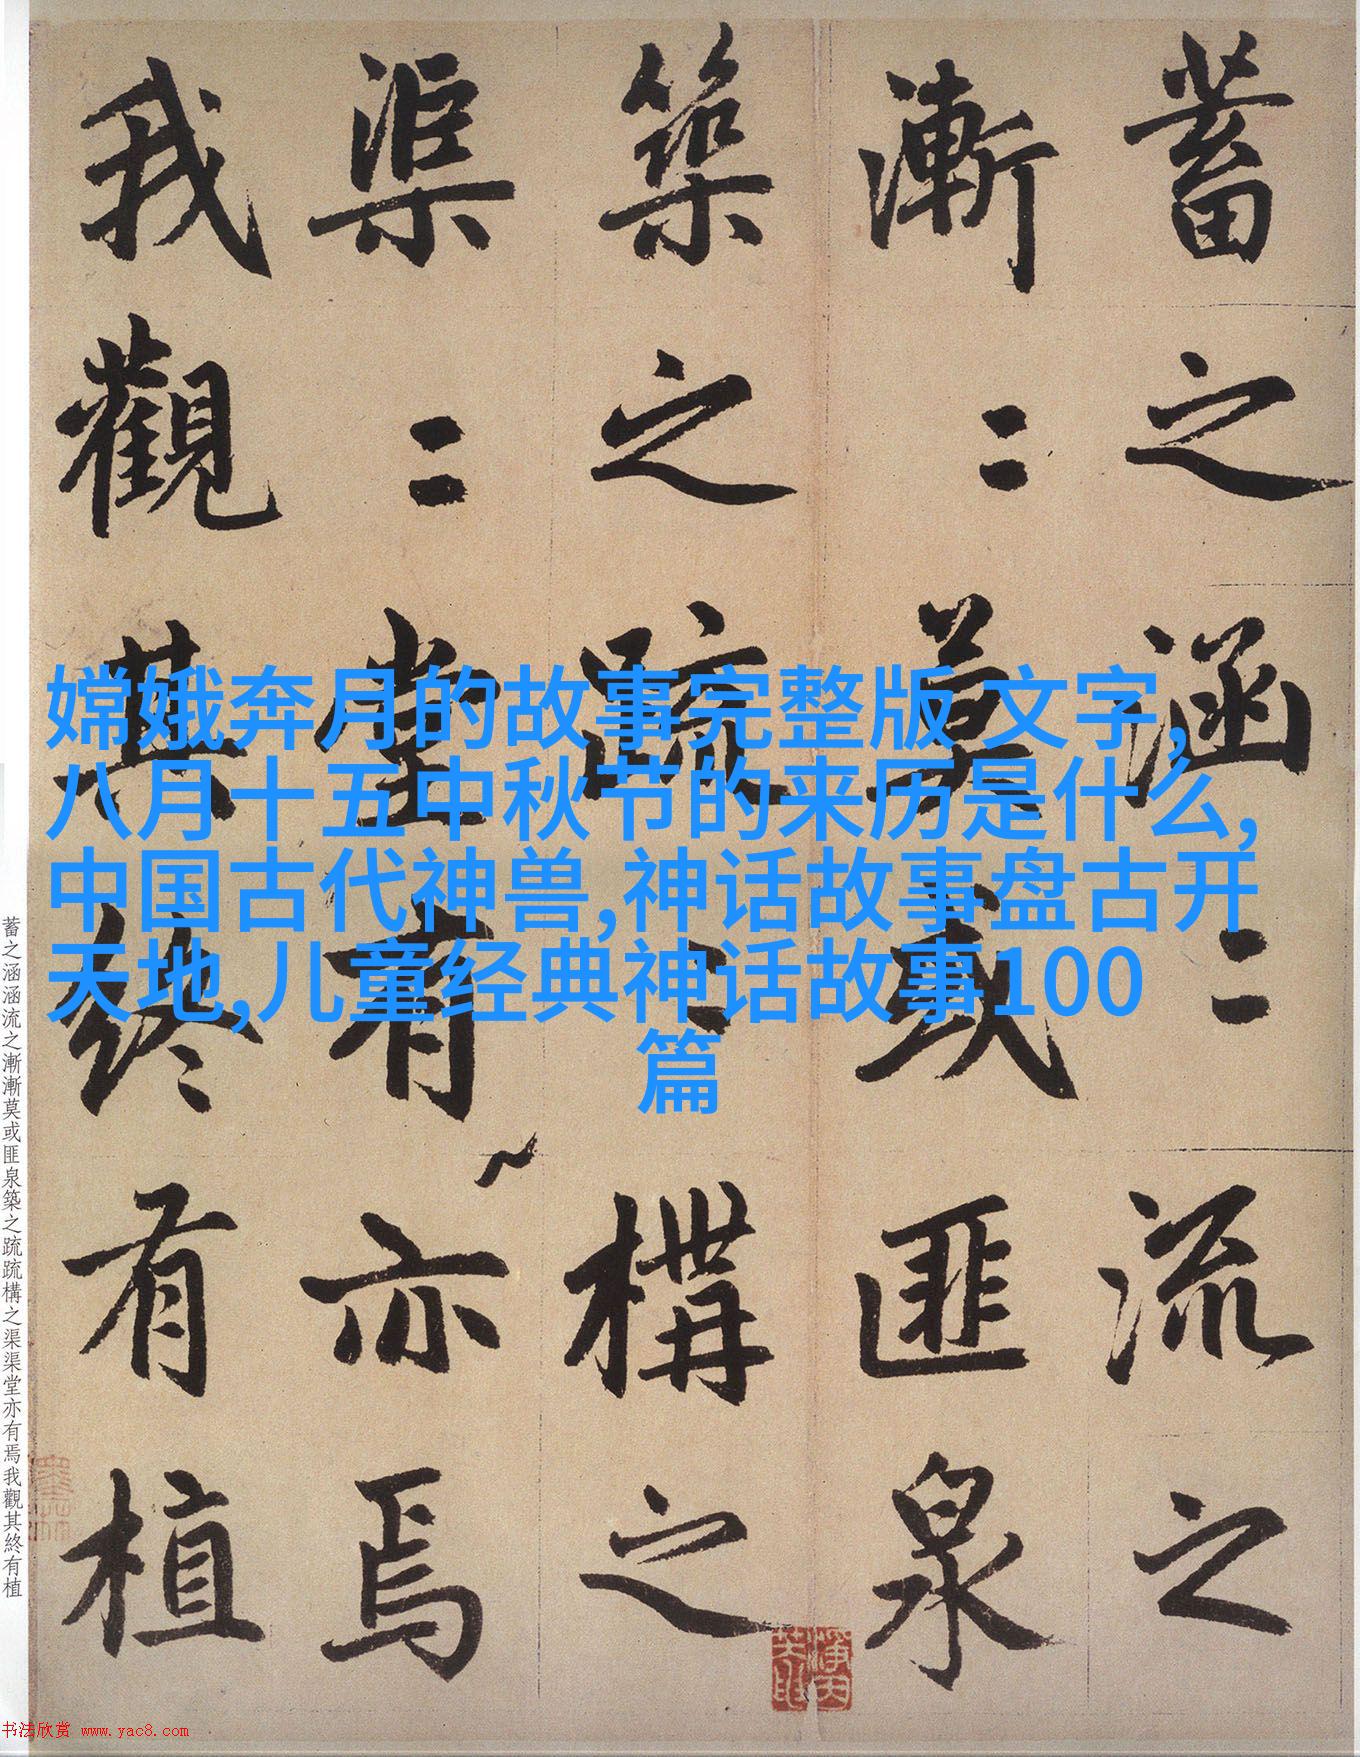 蓄之涵〻流之
漸〻莫或匪泉
築之疏〻構之
渠〻堂有亦焉
我觀其終有植
嫦娥奔月的故事完整版 文字,
八月十五中秋节的来历是什么,
中国古代神兽,神话故事盘古开
天地,儿童经典神话故事100
篇
蓄之涵涵流之漸漸莫或匪泉築之疏疏構之渠渠堂亦有焉我觀其終有植
书法欣赏 www.yac8.com